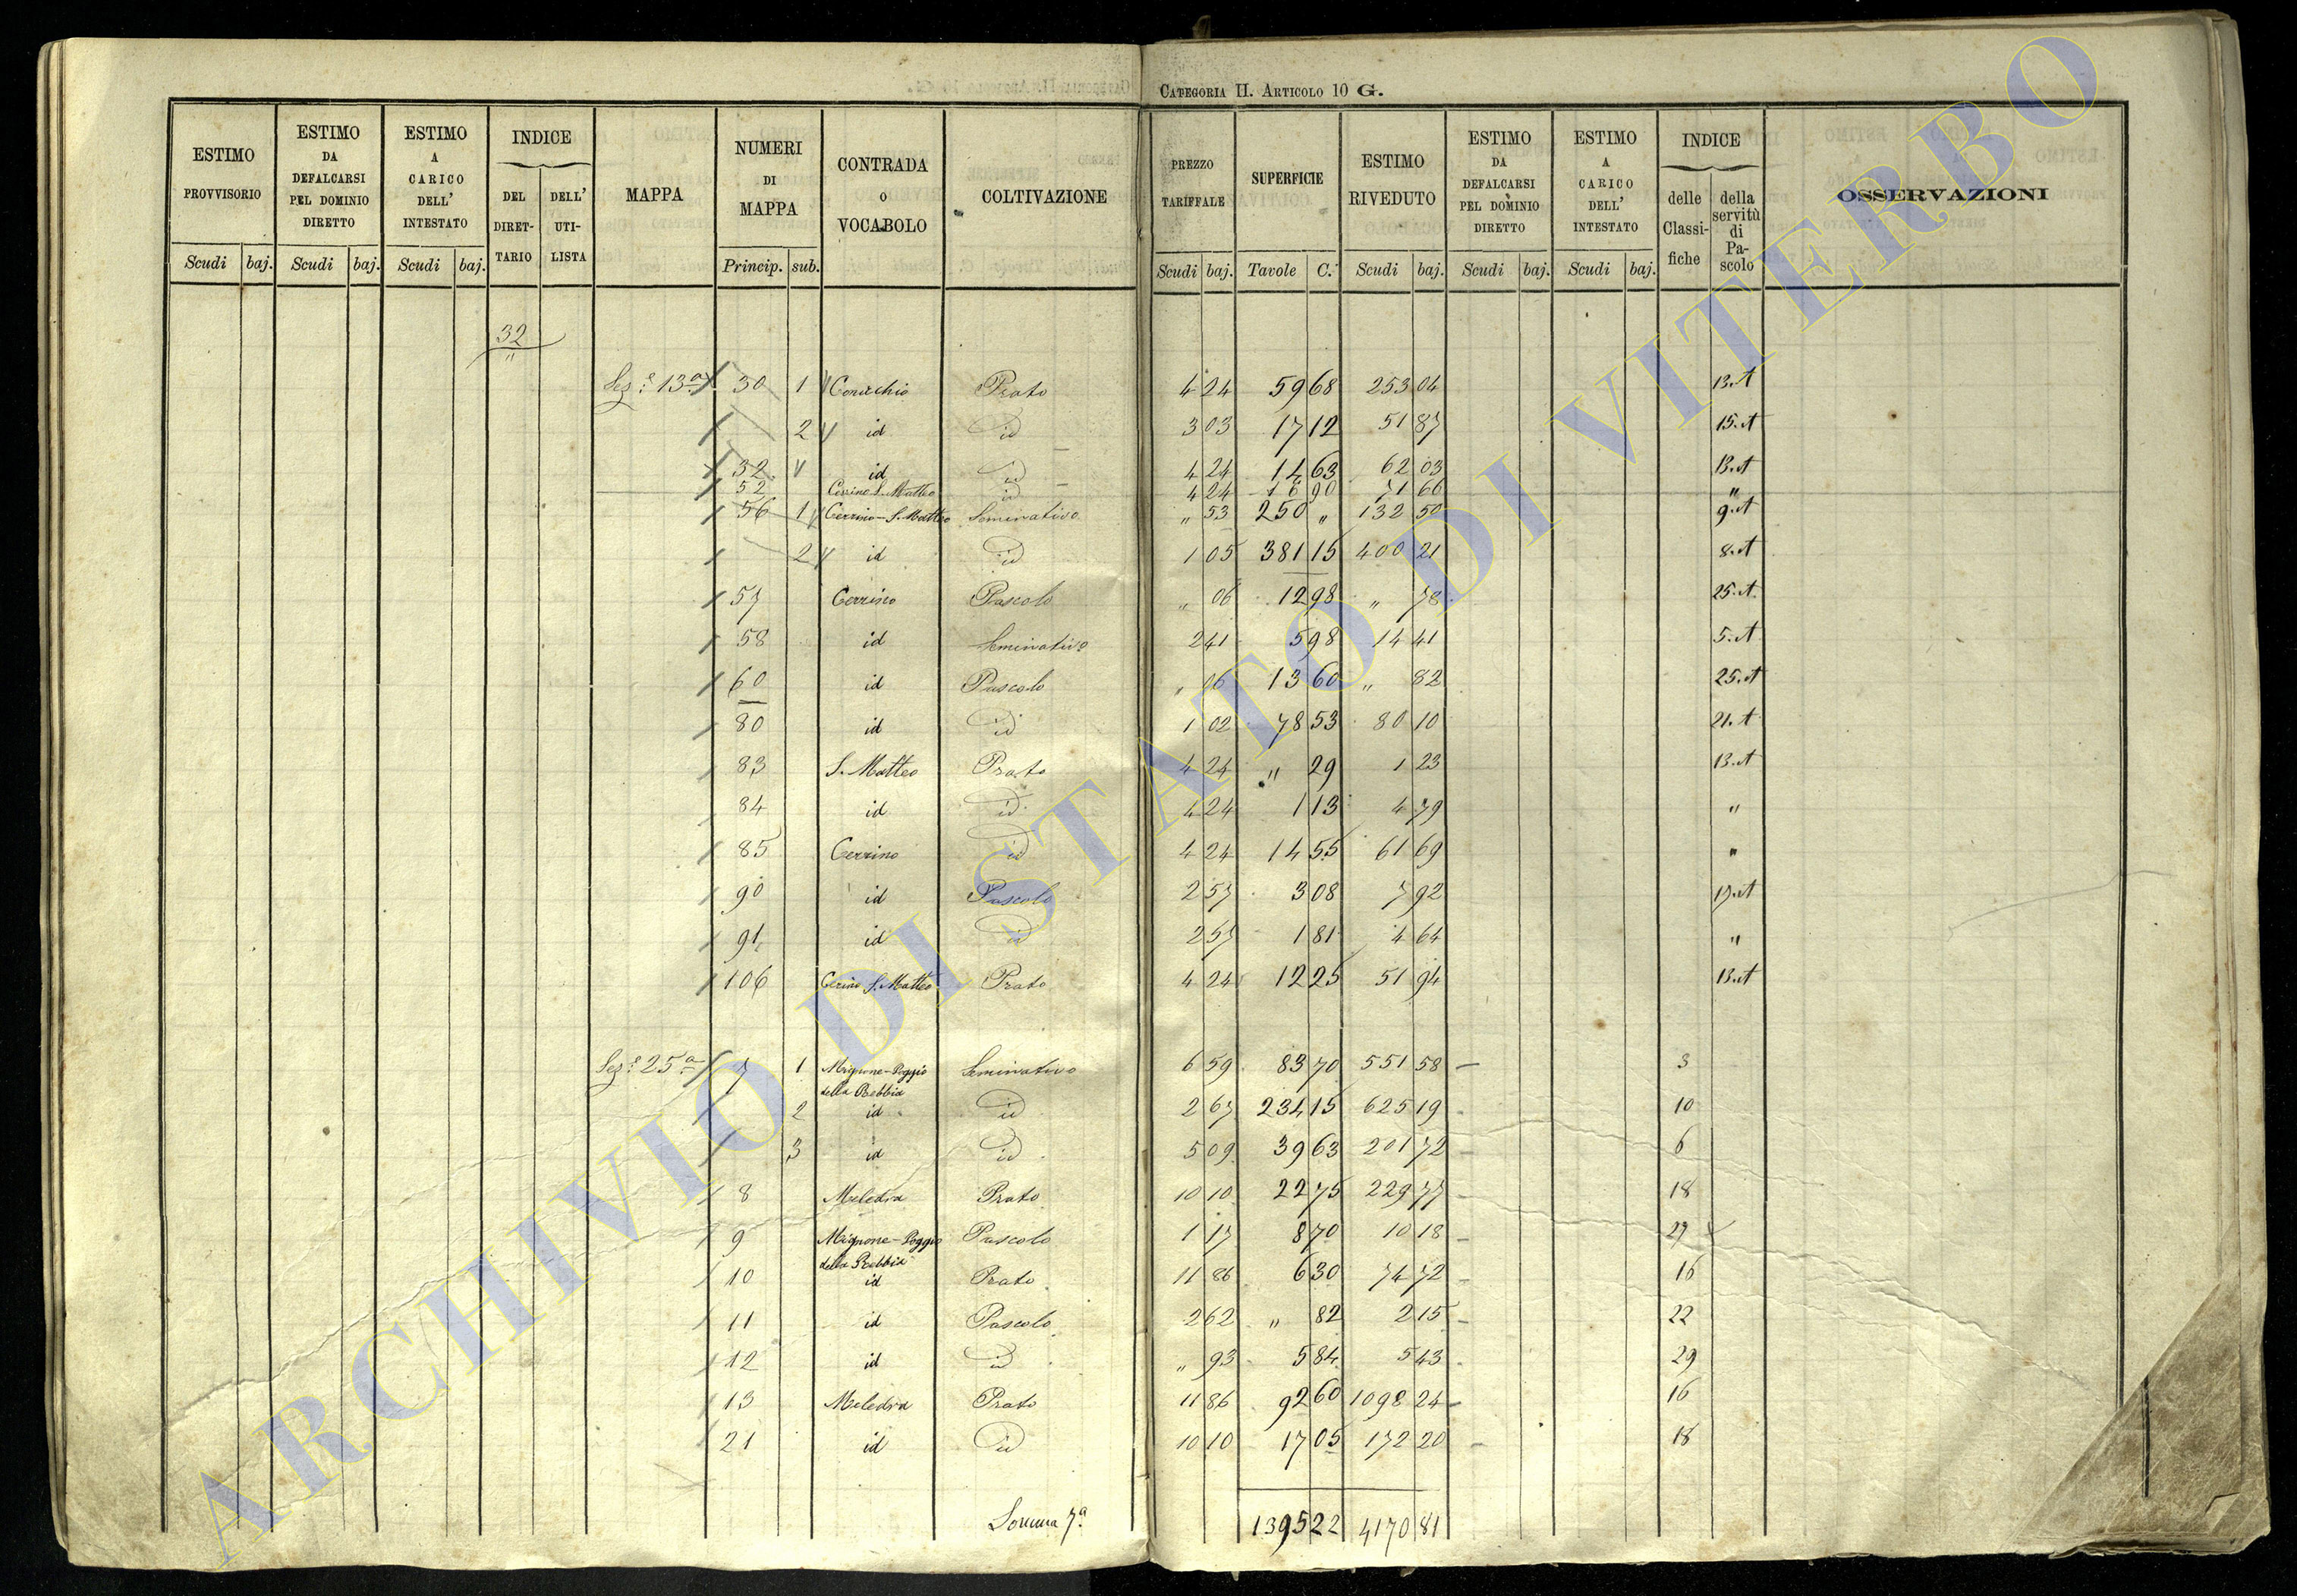 CATEGORIA II. ARTICOLO 10 G.
ESTIMO PROVVISORIO Scudi baj.
ESTIMO DA DEFALCARSI PEL DOMINIO DIRETTO Scudi baj.
ESTIMO A CARICO DELL' INTESTATO Scudi baj.
INDICE DEL DIRETTARIO DELL' UTILISTA
MAPPA
NUMERI DI MAPPA Princip. sub.
CONTRADA O VOCABOLO
COLTIVAZIONE
PREZZO TARIFFALE Scudi baj.
SUPERFICIE Tavole C.
ESTIMO RIVEDUTO Scudi baj.
ESTIMO DA DEFALCARSI PEL DOMINIO DIRETTO Scudi baj.
ESTIMO A CARICO DELL' INTESTATO Scudi baj.
INDICE delle Classifiche della servitù di Pascolo
OSSERVAZIONI
32
"
Sez.e 13a 30 1 Prato 4 24 59 68 253 04 13.A
2 id id 3 03 17 12 51 87 15.A
32 id id 4 24 14 63 62 03 13.A
52 Cerrino S. Matteo id 4 24 16 90 71 66 "
56 1 Cerrino-S. Matteo Seminativo " 53 250 " 132 50 9.A
2 id id 1 05 381 15 400 21 8.A
57 Cerrino Pascolo " 06 12 98 " 78 25.A
58 id Seminativo 2 41 5 98 14 41 5.A
60 id Pascolo " 06 13 60 " 82 25.A
80 id id 1 02 78 53 80 10 21.A
83 S. Matteo Prato 4 24 " 29 1 23 13.A
84 id id 4 24 1 13 4 79 "
85 Cerrino id 4 24 14 55 61 69 "
90 id Pascolo 2 57 3 08 7 92 17.A
91 id id 2 57 1 81 4 64 "
106 Cerino S. Matteo Prato 4 24 12 25 51 94 13.A
Sez.e 25a 7 1 Mignone-Poggio della Rebbia Seminativo 6 59 83 70 551 58 3
2 id id 2 67 234 15 625 19 10
3 id id 5 09 39 63 201 72 6
8 Meledra Prato 10 10 22 75 229 77 18
9 Mignone-Poggio della Rebbia Pascolo 1 17 8 70 10 18 27
10 id Prato 11 86 6 30 74 72 16
11 id Pascolo 2 62 " 82 2 15 22
12 id id " 93 5 84 5 43 29
13 Meledra Prato 11 86 92 60 1098 24 16
21 id id 10 10 17 05 172 20 18
Somma 7a 1395 22 4170 81
ARCHIVIO DI STATO DI VITERBO